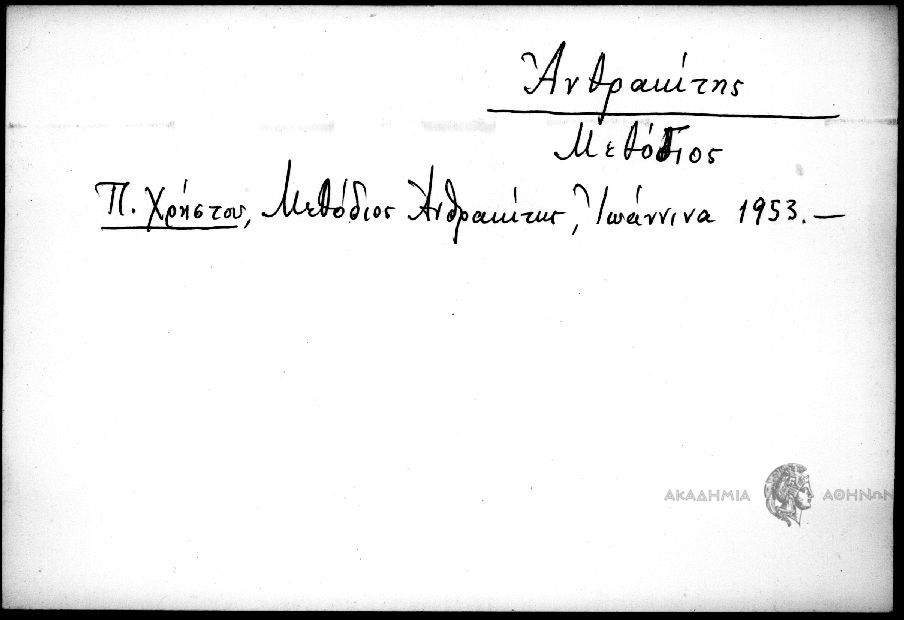 Ἀνθρακίτης
Μεθόδιος
Π. Χρήστου, Μεθόδιος Ἀνθρακίτης, Ἰωάννινα 1953. —
ΑΚΑΔΗΜΙΑ ΑΘΗΝΩΝ